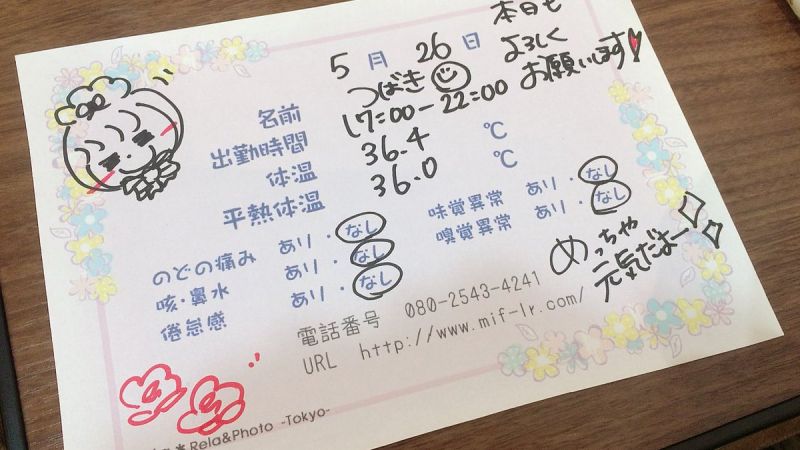 5月 26日
本日も
よろしく
お願いします
名前 つばき
出勤時間 17:00-22:00
体温 36.4 ℃
平熱体温 36.0 ℃
のどの痛み あり・なし
咳・鼻水 あり・なし
倦怠感 あり・なし
味覚異常 あり・なし
嗅覚異常 あり・なし
めっちゃ
元気だよー
電話番号 080-2543-4241
URL http://www.mif-lr.com/
Rela&Photo -Tokyo-